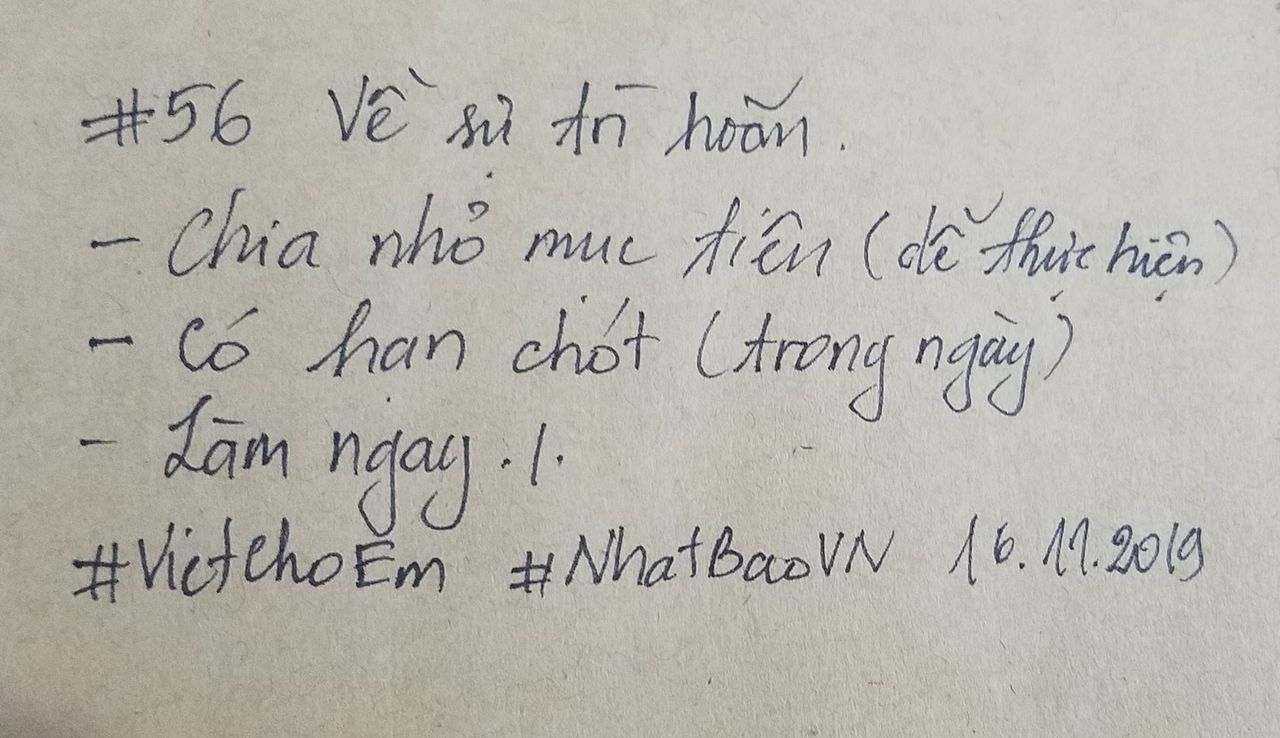 #56 Về sự trì hoãn.
- Chia nhỏ mục tiêu (dễ thực hiện)
- Có hạn chót (trong ngày)
- Làm ngay ./.
#VietchoEm #NhatBaoVN 16.11.2019